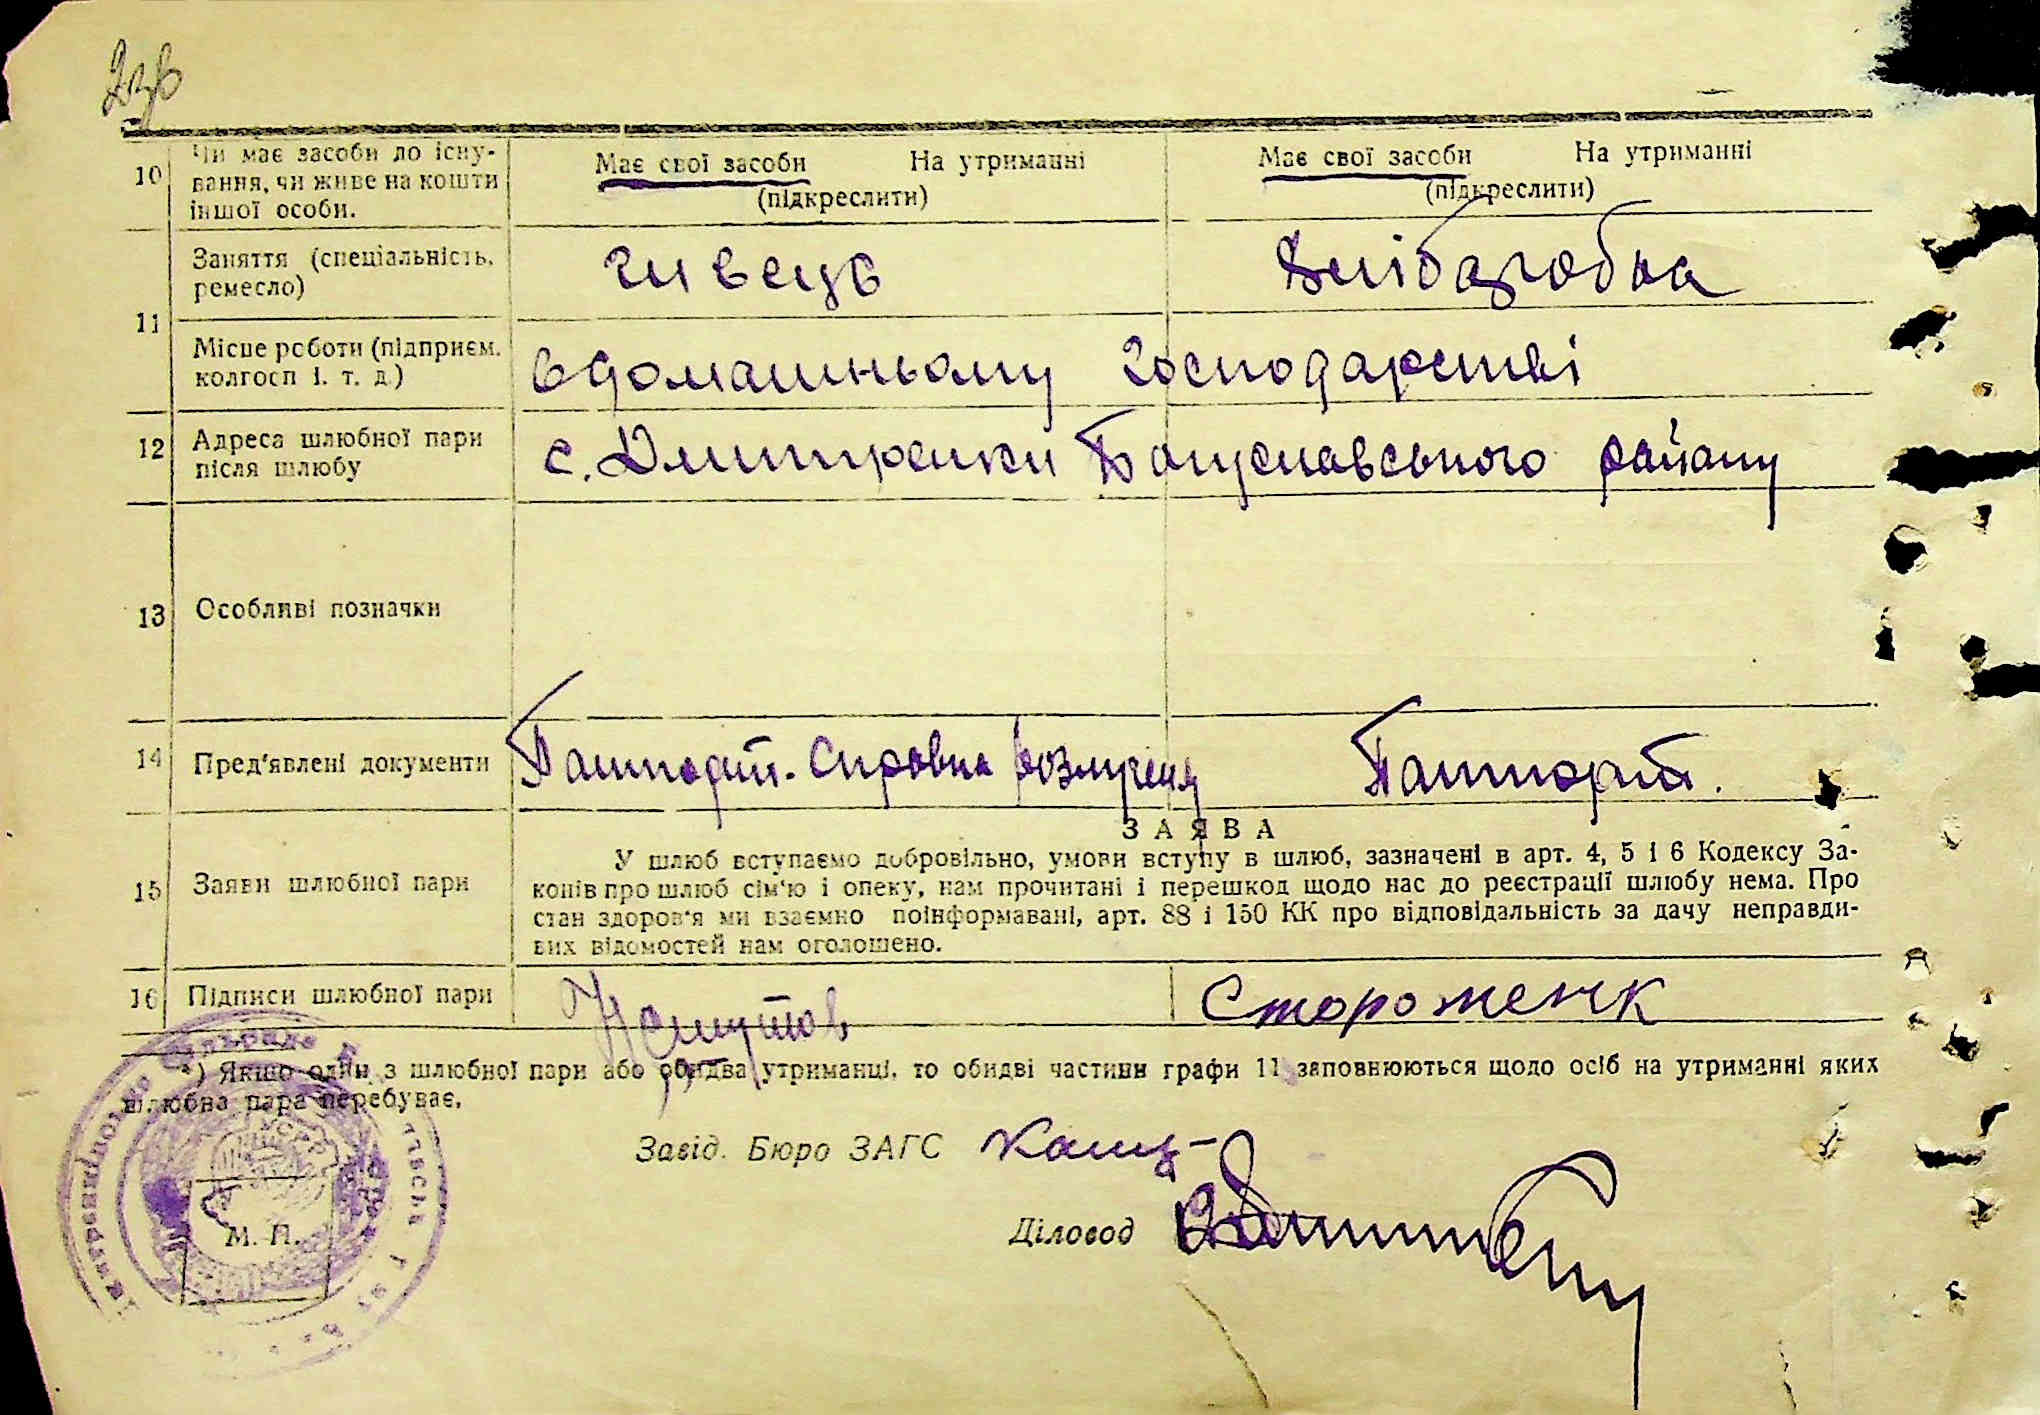 10 Чи має засоби до існу-
вання, чи живе на кошти
іншої особи.
Має свої засоби На утриманні
(підкреслити)
Має свої засоби На утриманні
(підкреслити)
11
Заняття (спеціальність,
ремесло)
Хлібаробка
Місце роботи (підприєм.
колгосп і. т. д.)
в домашньому господарстві
12 Адреса шлюбної пари
після шлюбу
с. Дмитренки Богуславського району
13 Особливі позначки
14 Пред'явлені документи
Пашпорт. Справка розлученя
Пашпорт.
15 Заяви шлюбної пари
ЗАЯВА
У шлюб вступаємо добровільно, умови вступу в шлюб, зазначені в арт. 4, 5 і 6 Кодексу За-
конів про шлюб сім'ю і опеку, нам прочитані і перешкод щодо нас до реєстрації шлюбу нема. Про
стан здоров'я ми взаємно поінформавані, арт. 88 і 150 КК про відповідальність за дачу неправди-
вих відомостей нам оголошено.
16 Підписи шлюбної пари
Стороженк
*) Якщо один з шлюбної пари або обидва утриманці, то обидві частини графи 11 заповнюються щодо осіб на утриманні яких
шлюбна пара перебуває.
Завід. Бюро ЗАГС
Діловод
М. П.